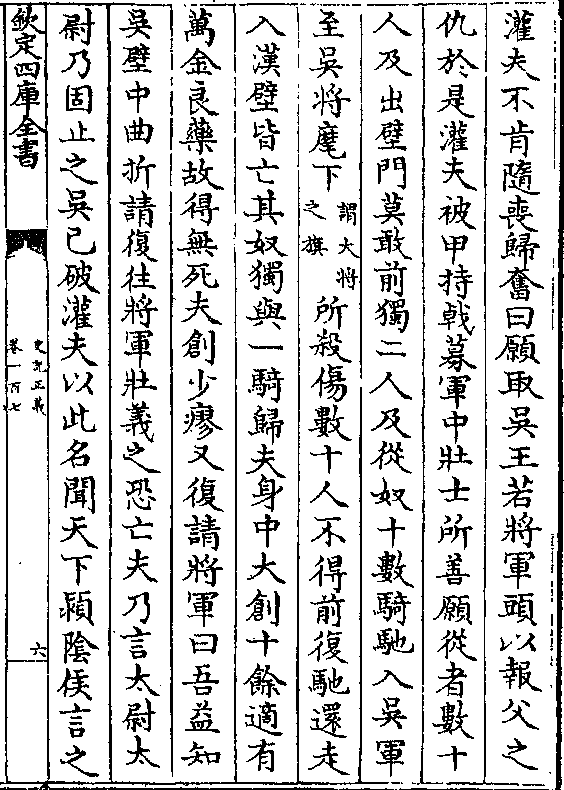 灌夫不肯隨喪歸奮曰願取吳王若將軍頭以報父之
仇於是灌夫被甲持戟募軍中壯士所善願從者數十
人及出壁門莫敢前獨二人及從奴十數騎馳入吳軍
至吳將麾下謂大將之旗所殺傷數十人不得前復馳還走
入漢壁皆亡其奴獨與一騎歸夫身中大創十餘適有
萬金良藥故得無死夫創少瘳又復請將軍曰吾益知
吳壁中曲折請復往將軍壯義之恐亡夫乃言太尉太
尉乃固止之吳已破灌夫以此名聞天下潁陰侯言之
欽定四庫全書
史記正義
卷一百七
六